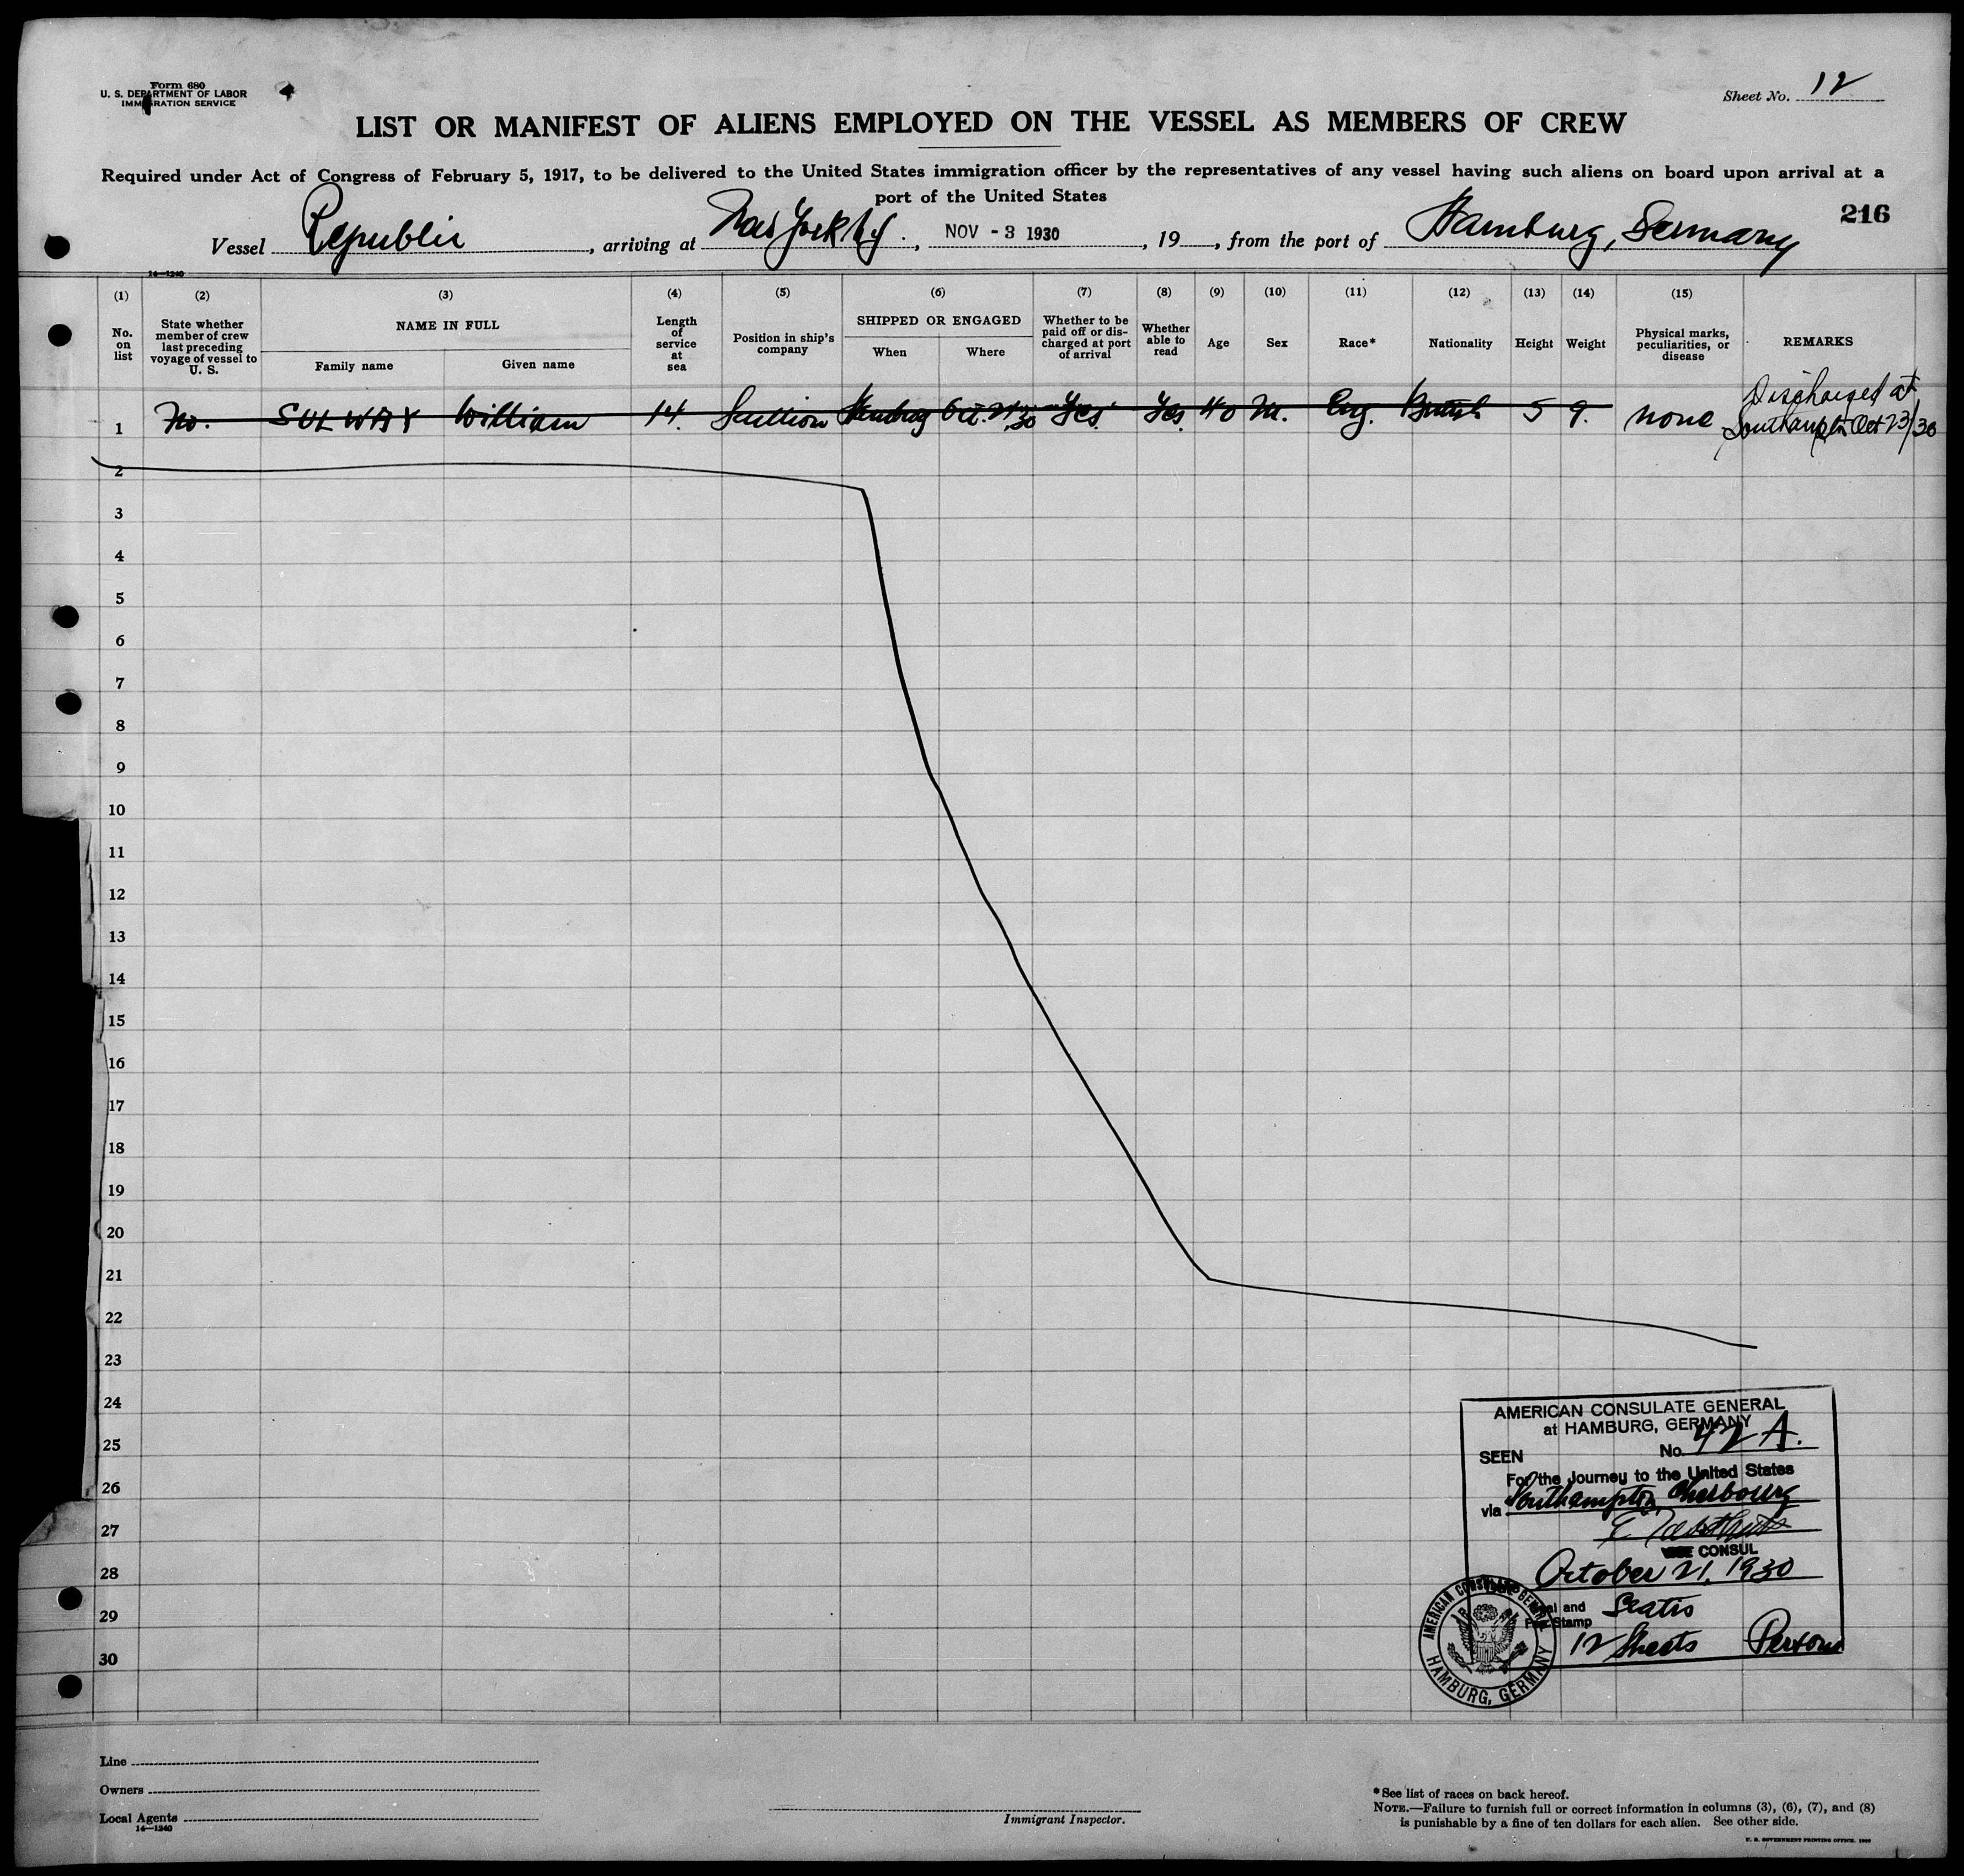 Form 680
U. S. DEPARTMENT OF LABOR
IMMIGRATION SERVICE
Sheet No. 12
LIST OR MANIFEST OF ALIENS EMPLOYED ON THE VESSEL AS MEMBERS OF CREW
Required under Act of Congress of February 5, 1917, to be delivered to the United States immigration officer by the representatives of any vessel having such aliens on board upon arrival at a
port of the United States
216
Vessel Republic, arriving at New York N.Y., NOV - 3 1930, 19, from the port of Hamburg, Germany
14—1240
(1) (2) (3) (4) (5) (6) (7) (8) (9) (10) (11) (12) (13) (14) (15)
No. on list
State whether member of crew last preceding voyage of vessel to U. S.
NAME IN FULL
Family name
Given name
Length of service at sea
Position in ship's company
SHIPPED OR ENGAGED
When
Where
Whether to be paid off or discharged at port of arrival
Whether able to read
Age
Sex
Race*
Nationality
Height
Weight
Physical marks, peculiarities, or disease
REMARKS
1 No. SULWAY William 14 Scullion Hamburg Oct. 21.30 Yes Yes 40 M. Eng. British 5 9. none Discharged at
Southampton Oct 23/30
2
3
4
5
6
7
8
9
10
11
12
13
14
15
16
17
18
19
20
21
22
23
24
25
26
27
28
29
30
AMERICAN CONSULATE GENERAL
at HAMBURG, GERMANY
SEEN No. 42 A.
For the Journey to the United States
via Southampton, Cherbourg
VICE CONSUL
October 21, 1930
Seal and
Fee Stamp
Gratis
12 Sheets Persons
AMERICAN CONSULATE GENERAL
HAMBURG, GERMANY
Line
Owners
Local Agents
14—1240
Immigrant Inspector.
*See list of races on back hereof.
NOTE.—Failure to furnish full or correct information in columns (3), (6), (7), and (8)
is punishable by a fine of ten dollars for each alien. See other side.